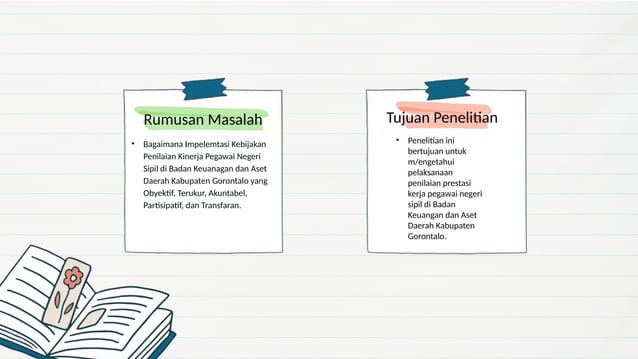 Rumusan Masalah
• Bagaimana Impelemtasi Kebijakan
Penilaian Kinerja Pegawai Negeri
Sipil di Badan Keuanagan dan Aset
Daerah Kabupaten Gorontalo yang
Obyektif, Terukur, Akuntabel,
Partisipatif, dan Transfaran.
Tujuan Penelitian
• Penelitian ini
bertujuan untuk
m/engetahui
pelaksanaan
penilaian prestasi
kerja pegawai negeri
sipil di Badan
Keuangan dan Aset
Daerah Kabupaten
Gorontalo.